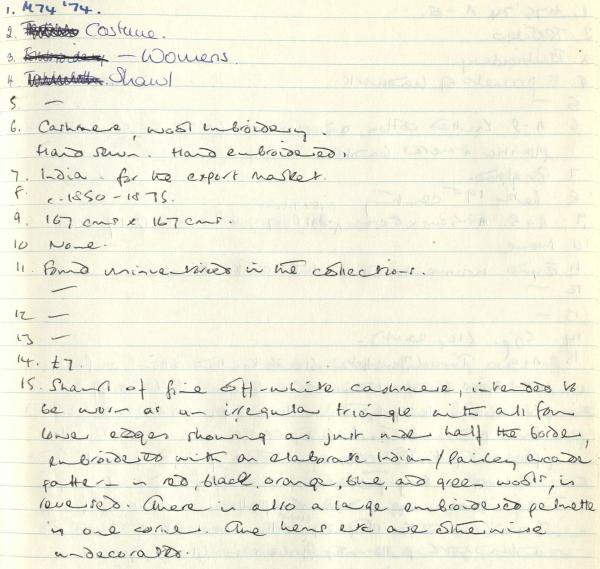 1. M74 '74.
2. Textiles Costume.
3. Embroidery – Womens.
4. Shawl
5 —
6. Cashmere, wool embroidery
Hand sewn. Hand embroidered.
7. India. for the export market.
8 c. 1850 - 1875.
9. 167 cms x 167 cms.
10 None.
11. Found uninventoried in the collections.
—
12 —
13 —
14. £7.
15. Shawl of fine off-white cashmere, intended to
be worn as an irregular triangle with all four
lower edges showing as just over half the border,
embroidered with an elaborate Indian/Paisley arcade
pattern in red, black, orange, blue, and green wools, is
reversed. There is also a large embroidered palmette
in one corner. The hems etc are otherwise
undecorated.